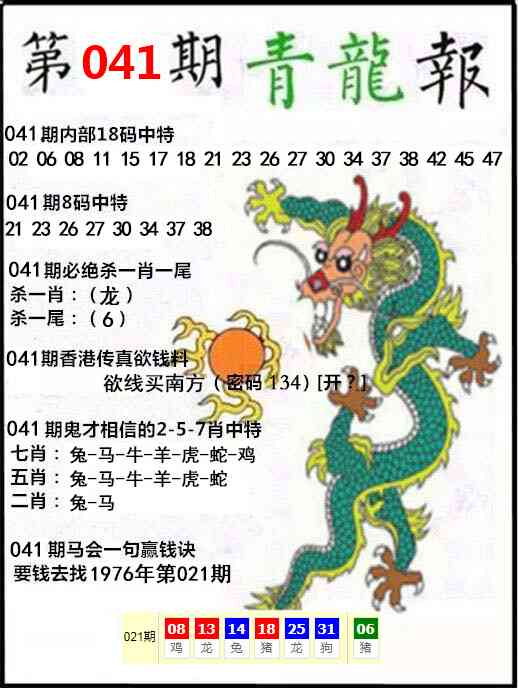 第041期青龍報
041期内部18码中特
02 06 08 11 15 17 18 21 23 26 27 30 34 37 38 42 45 47
041期8码中特
21 23 26 27 30 34 37 38
041期必绝杀一肖一尾
杀一肖：（龙）
杀一尾：（6）
041期香港传真欲钱料
欲线买南方（密码134）[开？]
041期鬼才相信的2-5-7肖中特
七肖：兔-马-牛-羊-虎-蛇-鸡
五肖：兔-马-牛-羊-虎-蛇
二肖：兔-马
041期马会一句赢钱诀
要钱去找1976年第021期
021期 08 13 14 18 25 31 06
鸡 龙 兔 猪 龙 狗 猪